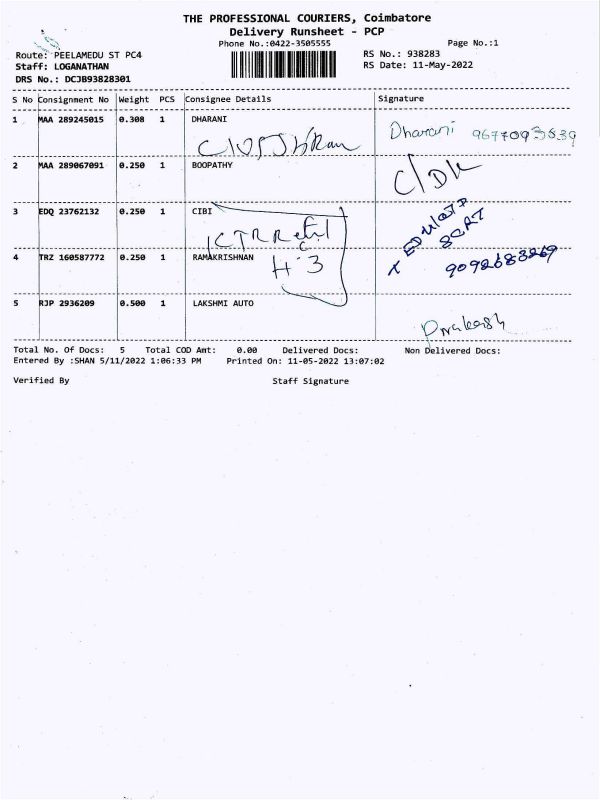 THE PROFESSIONAL COURIERS, Coimbatore
Delivery Runsheet - PCP
Phone No.:0422-3505555
Page No.:1
Route: PEELAMEDU ST PC4
RS No.: 938283
Staff: LOGANATHAN
RS Date: 11-May-2022
DRS No.: DCJB93828301
S No Consignment No Weight PCS Consignee Details Signature
1 MAA 289245015 0.308 1 DHARANI
Dharani 9677093839
2 MAA 289067091 0.250 1 BOOPATHY
3 EDQ 23762132 0.250 1 CIBI
4 TRZ 160587772 0.250 1 RAMAKRISHNAN
H-3
9092683269
5 RJP 2936209 0.500 1 LAKSHMI AUTO
Prakash
Total No. Of Docs: 5 Total COD Amt: 0.00 Delivered Docs: Non Delivered Docs:
Entered By :SHAN 5/11/2022 1:06:33 PM Printed On: 11-05-2022 13:07:02
Verified By Staff Signature